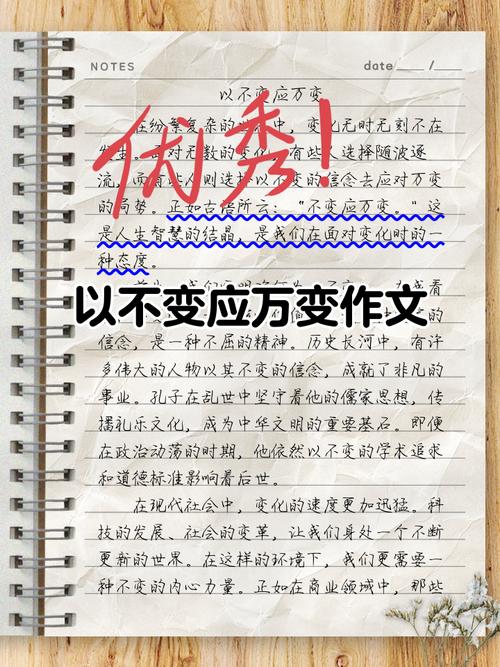 NOTES
date ____ / ____
以不变应万变
在纷繁复杂的世界中，变化无时无刻不在
发生。面对无数的变化，有些人选择随波逐
流，而有些人则选择以不变的信念去应对万变
的局势。正如古语所云：“不变应万变。”这
是人生智慧的结晶，是我们在面对变化时的一
种态度。
优秀！
以不变应万变作文
信念，是一种不屈的精神。历史长河中，有许
多伟大的人物以其不变的信念，成就了非凡的
事业。孔子在乱世中坚守着他的儒家思想，传
播礼乐文化，成为中华文明的重要基石。即便
在政治动荡的时期，他依然以不变的学术追求
和道德标准影响着后世。
在现代社会中，变化的速度更加迅猛。科
技的发展、社会的变革，让我们身处一个不断
更新的世界。在这样的环境下，我们更需要一
种不变的内心力量。正如在商业领域中，那些